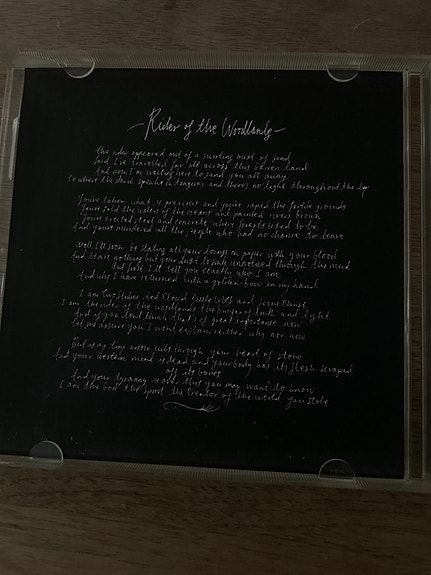 Rider of the Woodlands
The rider appeared out of a swirling mist of sand
Said I've travelled far all across this barren land
And now I'm waiting here to send you all away
To where the devil speaks in tongues and there's no light throughout the day
You've taken what is precious and you've raped the fertile grounds
You've the of the oceans and painted rivers brown
You've erected steel and concrete where forests used to be
And you've murdered all the people who had no chance to leave
Well I'll soon be stating all your doings on paper with your blood
And leave nothing but your dust to sink unnoticed through the mud
But first I'll tell you exactly who I am
And why I have returned with a golden bow in my hand
I am Two Strikes Red Cloud Little Wolf and Jesus Christ
I am the rider of the woodlands the bringer of truth and light
And if you don't think that's of great importance now
Let me assure you I won't explain neither why nor how
But as my arrow cuts through your heart of stone
And your western mind is dead and your body has its flesh scraped
off its bones
And your tyranny is over this you may want to know
I am the God the spirit the creator of the world you stole